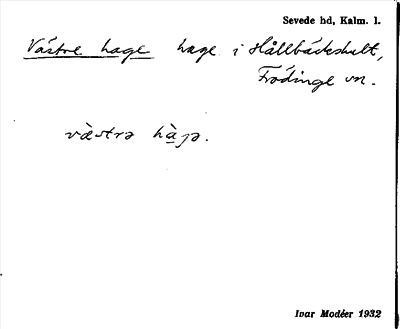 Sevede hd, Kalm. l.
Västre hage hage i Hållbäckshult,
Frödinge sn.
væ̀strə hàgə.
Ivar Modéer 1932